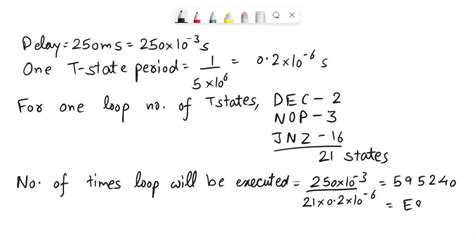 Delay = 250ms = 250×10⁻³ s
One T-state period = 1/5×10⁶ = 0.2×10⁻⁶ s
For one loop no. of T states, DEC - 2
NOP - 3
JNZ - 16
21 states
No. of times loop will be executed = 250×10⁻³/21×0.2×10⁻⁶ = 59524
= E8